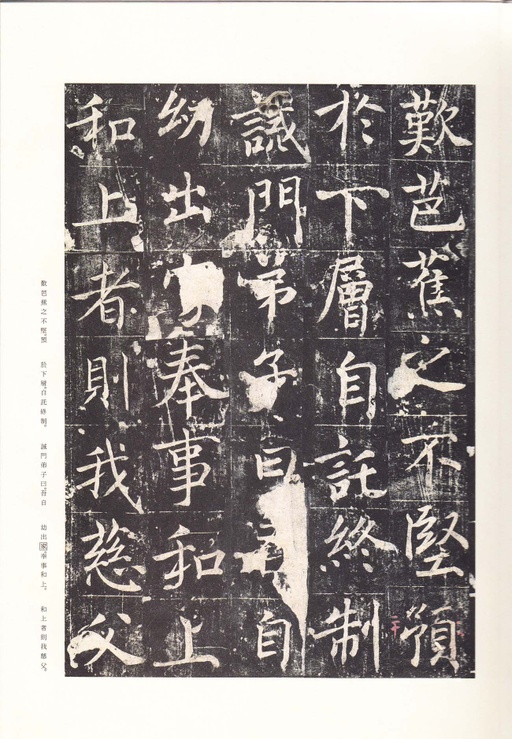 歎芭蕉之不堅預
於下層自託終制
誡門弟子曰吾自
幼出家奉事和上
和上者則我慈父
歎芭蕉之不堅。預 於下層。自託終制。 誡門弟子曰。吾自 幼出家奉事和上。 和上者則我慈父。